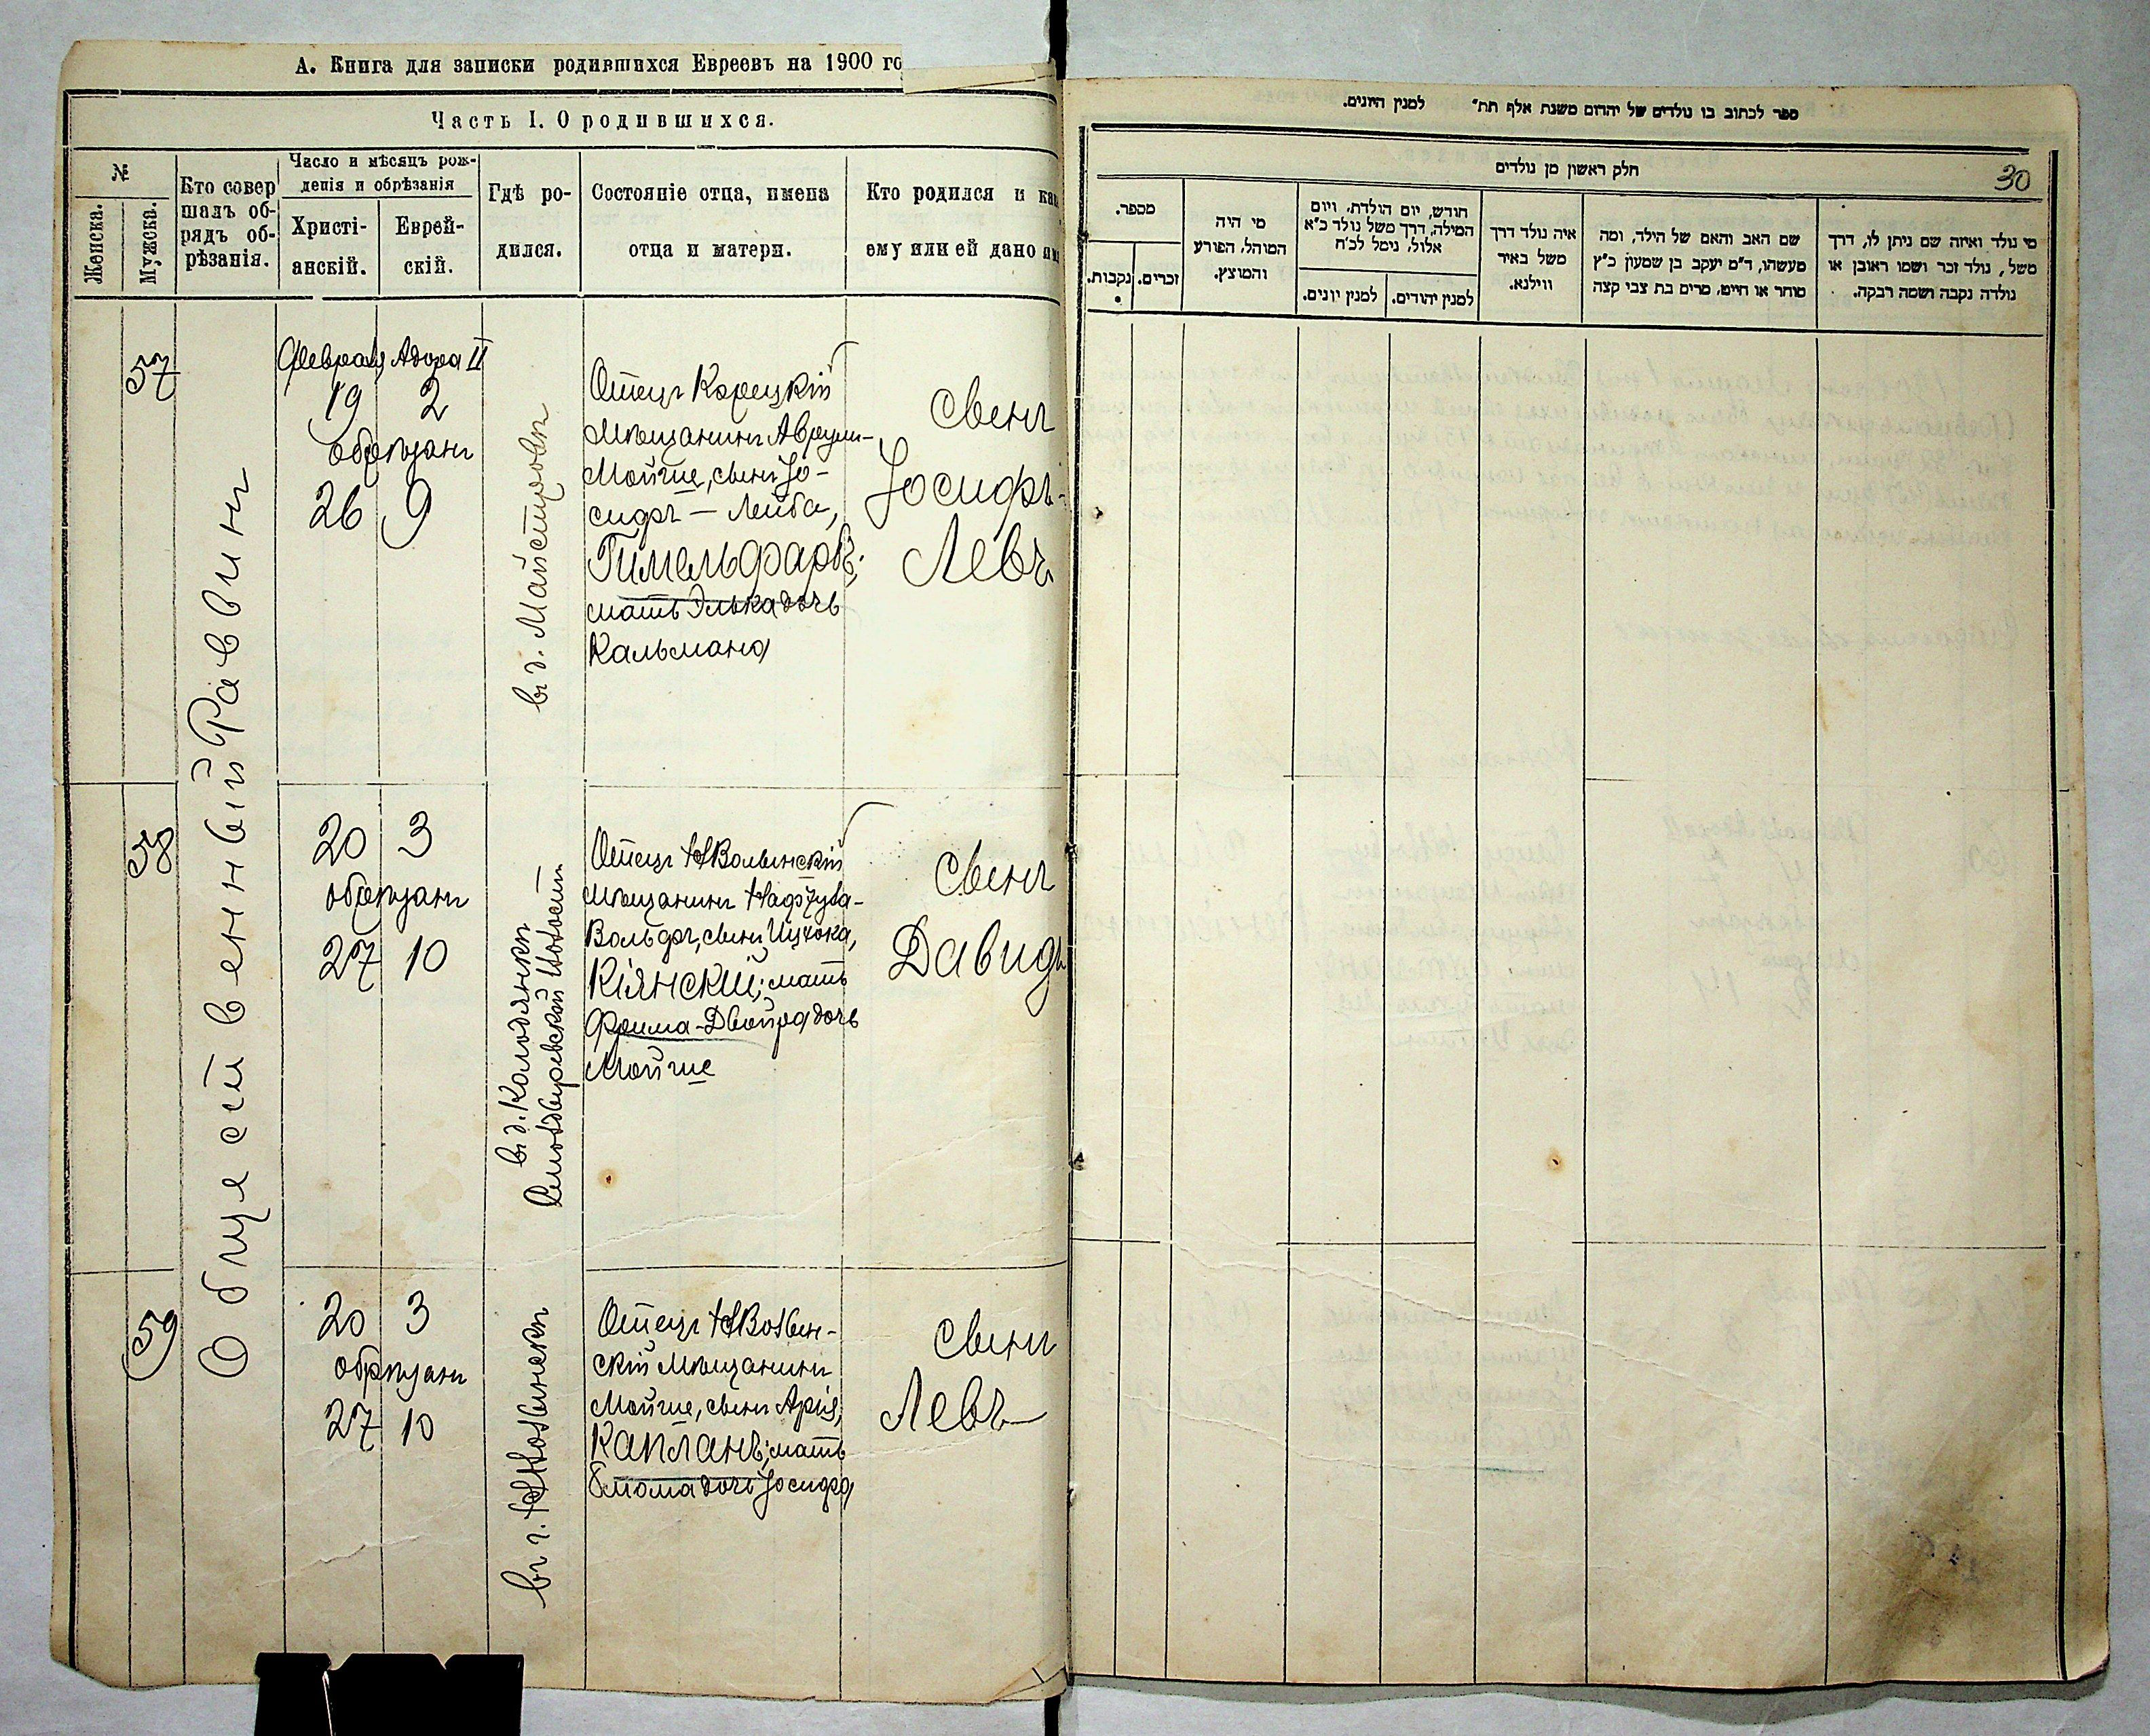 А. Книга для записки родившихся Евреевъ на 1900 го
Часть I. О родившихся.
№
Женска.
Мужска.
Кто совер
шалъ об-
рядъ об-
рѣзанія.
Число и мѣсяцъ рож-
денія и обрѣзанія
Христі-
анскій.
Еврей-
скій.
Гдѣ ро-
дился.
Состояніе отца, имена
отца и матери.
Кто родился и как
ему или ей дано им
Общественный Раввинъ
57
Февраля Адора II
19 2
обрѣзанъ
26 9
въ д. Майстровѣ
Отецъ Корецкій
Мѣщанинъ Аврум-
Мойше, сынъ Іо-
сифъ — Лейба,
Гимельфарбъ;
мать Элька дочь
Кальмана
Сынъ
Іосифъ-
Левъ
58
20 3
обрѣзанъ
27 10
въ д. Колодянкѣ
волости
Отецъ НВолынскій
Мѣщанинъ Нафтула-
Вольфъ, сынъ Ицхока,
Кіянскій; мать
Фрима-Двойра дочь
Мойше
Сынъ
Давидъ
59
20 3
обрѣзанъ
27 10
въ г. НВолынскѣ
Отецъ НВолын-
скій Мѣщанинъ
Мойше, сынъ Арія,
Капланъ; мать
Блюма дочь Іосифа
Сынъ
Левъ
ספר לכתוב בו נולדים של יהודים משנת אלף תת״ למנין היונים.
חלק ראשון מן נולדים
30
מספר.
נקבות.
זכרים.
מי היה
המוהל, הפורע
והמוצץ.
חודש, יום הולדת, ויום
המילה, דרך משל נולד כ״א
אלול, נימל לכ״ח
למנין יונים.
למנין יהודים.
איה נולד דרך
משל באיר
ווילנא.
שם האב והאם של הילד, ומה
מעשהו, ד״מ יעקב בן שמעון כ״ץ
סוחר או חייט, מרים בת צבי קצה
מי נולד ואיזה שם ניתן לו, דרך
משל, נולד זכר ושמו ראובן או
נולדה נקבה ושמה רבקה.